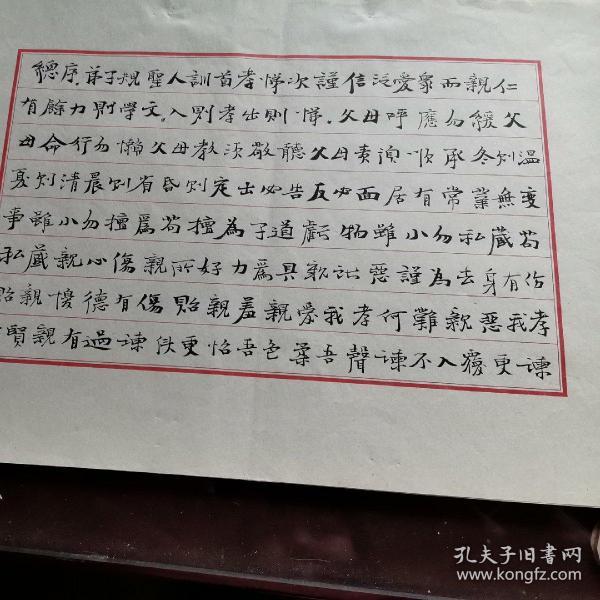 總序.弟子規聖人訓首孝悌次謹信泛愛眾而親仁
有餘力則學文.入則孝出則悌.父母呼應勿緩父
母命行勿懶父母教須敬聽父母責須順承冬則溫
夏則清晨則省昏則定出必告反必面居有常業無變
事雖小勿擅為苟擅為子道虧物雖小勿私藏苟
私藏親心傷親所好力為具親所惡謹為去身有傷
貽親憂德有傷貽親羞親愛我孝何難親惡我孝
賢親有過諫使更怡吾色柔吾聲諫不入復更諫
孔夫子旧书网
www.kongfz.com